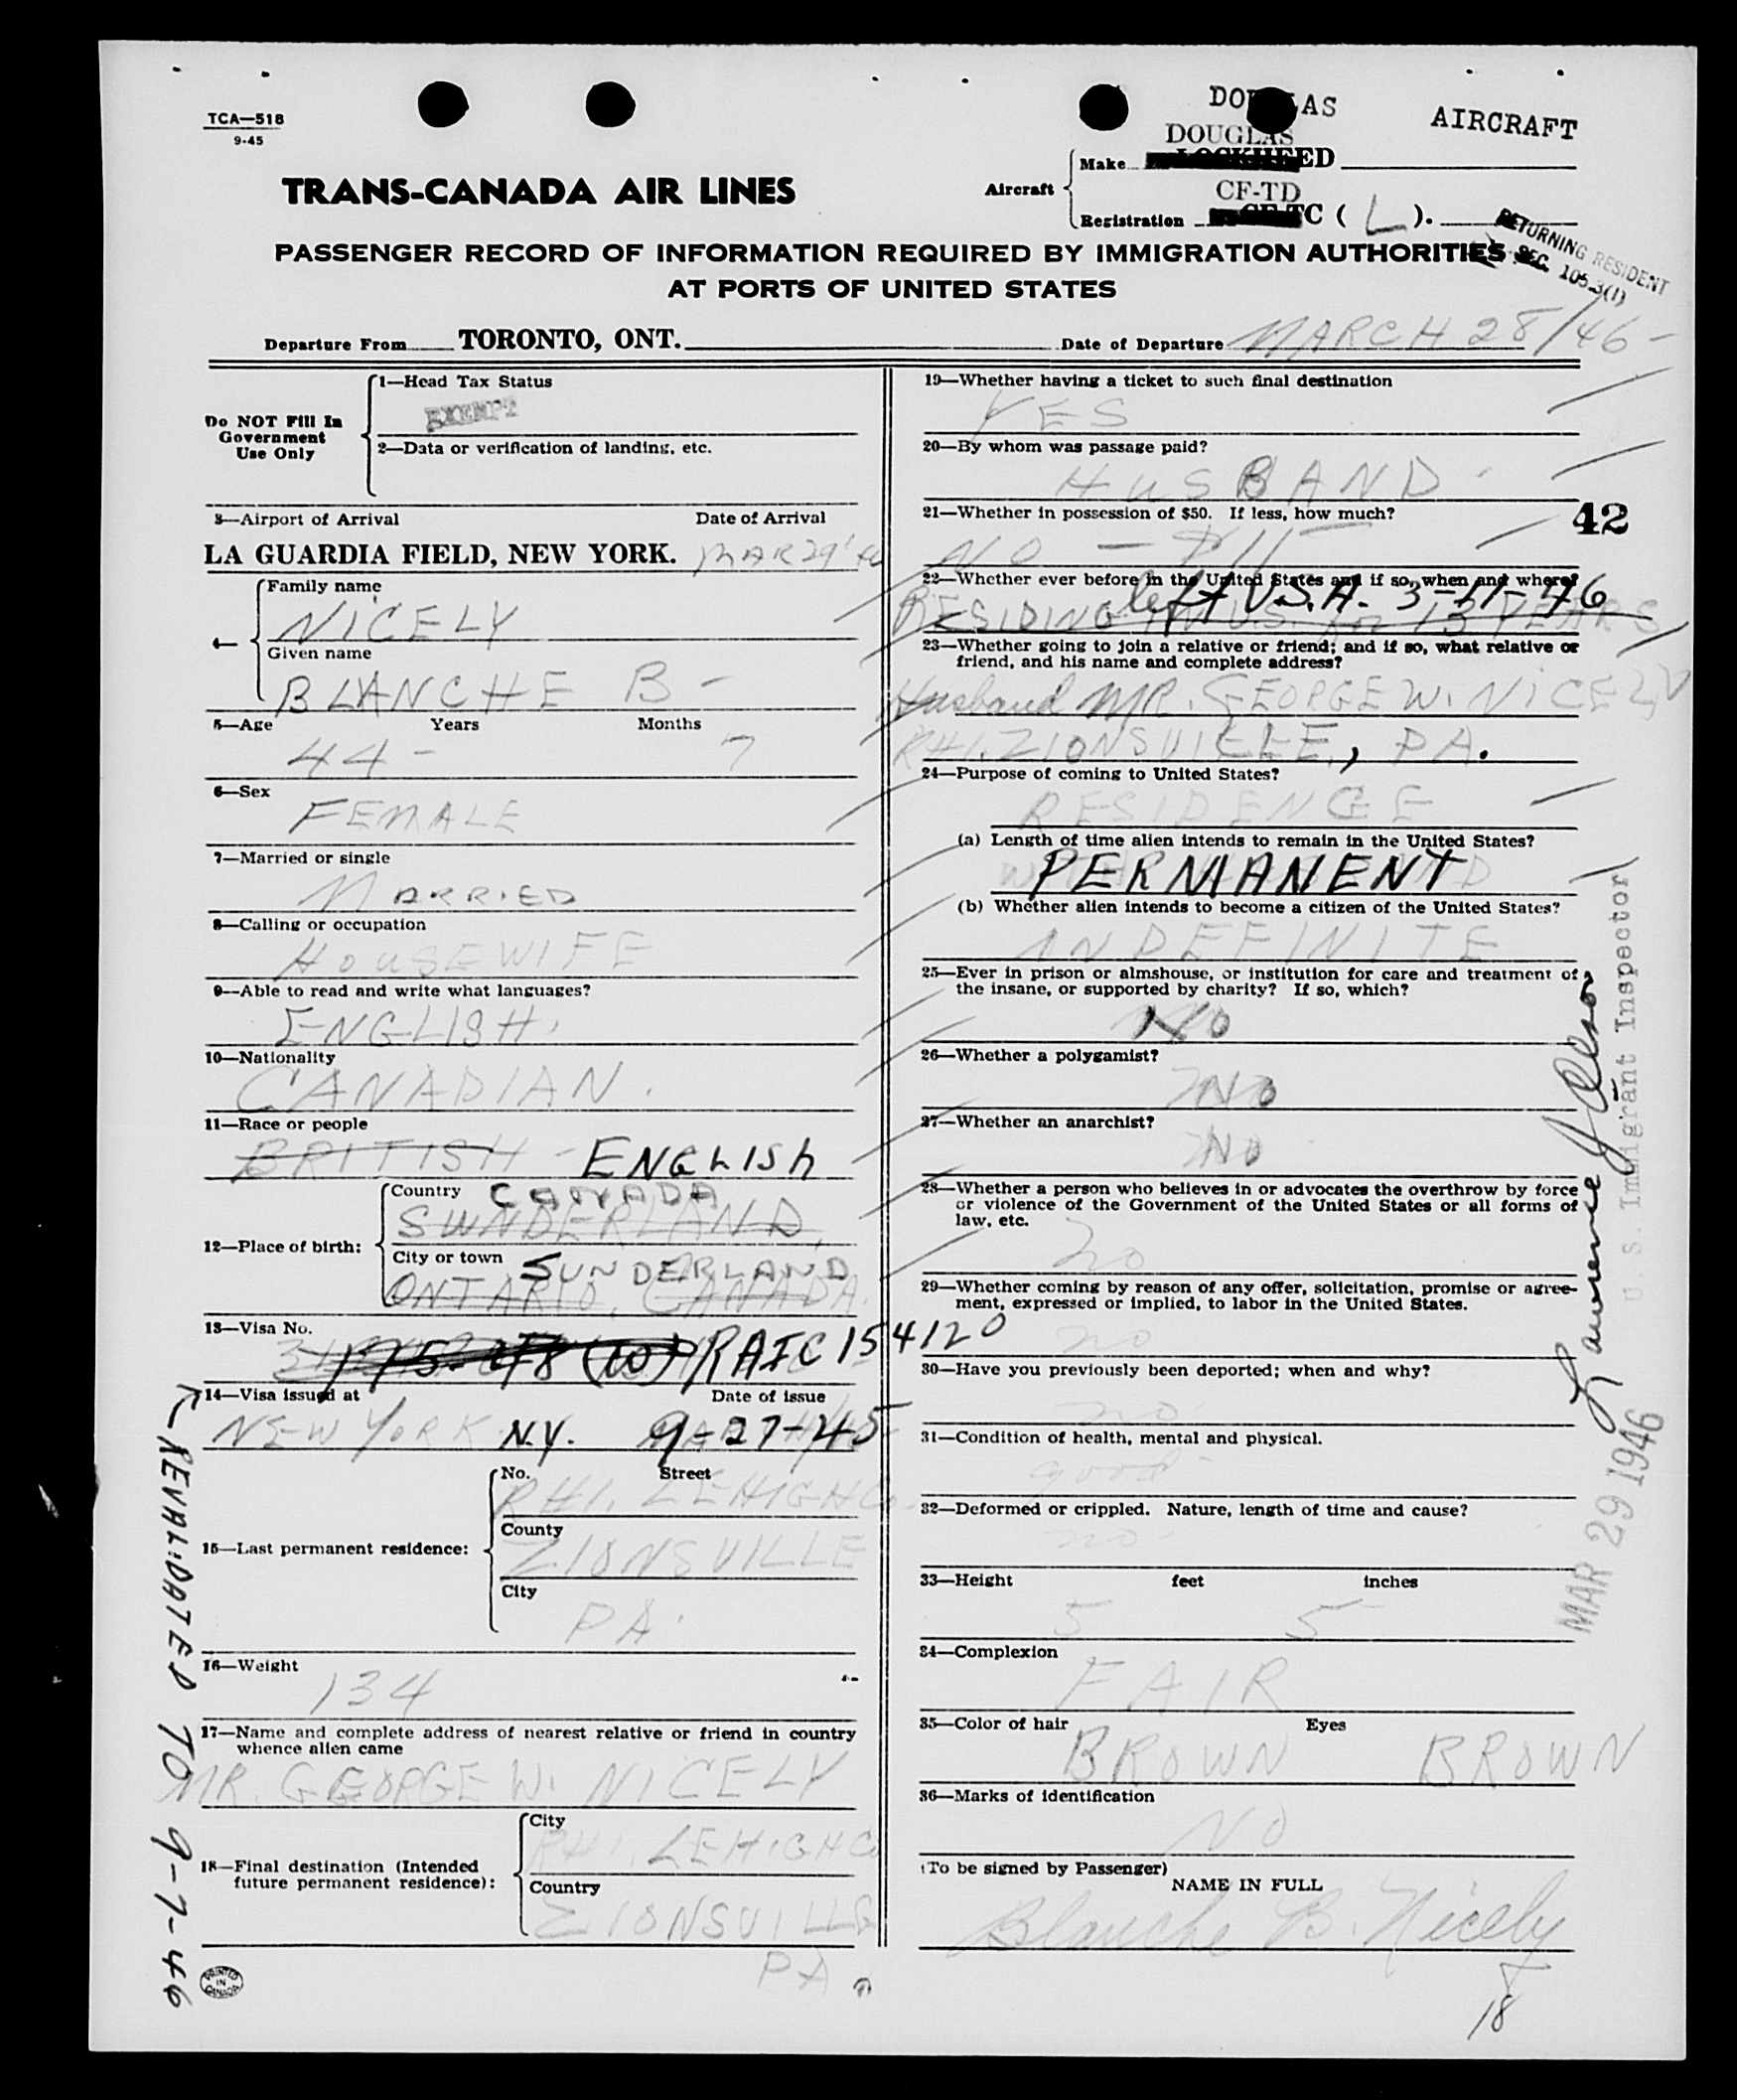 TCA—518
9-45
DOUGLAS AIRCRAFT
DOUGLAS
Aircraft
Make LOCKHEED
CF-TD
Registration CF-TC ( L ).
TRANS-CANADA AIR LINES
RETURNING RESIDENT
SEC. 105.3(1)
PASSENGER RECORD OF INFORMATION REQUIRED BY IMMIGRATION AUTHORITIES
AT PORTS OF UNITED STATES
Departure From TORONTO, ONT. Date of Departure MARCH 28/46-
Do NOT Fill In
Government
Use Only
1—Head Tax Status
EXEMPT
2—Data or verification of landing, etc.
3—Airport of Arrival Date of Arrival
LA GUARDIA FIELD, NEW YORK. MAR 29'46
4—
Family name
NICELY
Given name
BLANCHE B-
5—Age Years Months
44 - 7
6—Sex
FEMALE
7—Married or single
MARRIED
8—Calling or occupation
HOUSEWIFE
9—Able to read and write what languages?
ENGLISH.
10—Nationality
CANADIAN.
11—Race or people
BRITISH - ENGLISh
12—Place of birth:
Country CANADA
SUNDERLAND,
City or town SUNDERLAND
ONTARIO, CANADA.
13—Visa No.
RAIC 154120
14—Visa issued at Date of issue
NEW YORK N.Y. 9-27-45
15—Last permanent residence:
No. Street
R#1. LEHIGH Co.
County
ZIONSVILLE
City
PA.
16—Weight
134
17—Name and complete address of nearest relative or friend in country
whence alien came
MR. GEORGE W. NICELY
18—Final destination (Intended
future permanent residence):
City
R#1. LEHIGH Co
Country
ZIONSVILLE
PA
REVALIDATED TO 9-7-46
PRINTED
IN
CANADA
19—Whether having a ticket to such final destination
YES
20—By whom was passage paid?
HUSBAND.
21—Whether in possession of $50. If less, how much?
42
NO — $11
22—Whether ever before in the United States and if so, when and where?
left U.S.A. 3-11-46
RESIDING IN U.S. for 13 YEARS
23—Whether going to join a relative or friend; and if so, what relative or
friend, and his name and complete address?
Husband MR. GEORGE W. NICELY
R#1. ZIONSVILLE, PA.
24—Purpose of coming to United States?
RESIDENCE
(a) Length of time alien intends to remain in the United States?
PERMANENT
(b) Whether alien intends to become a citizen of the United States?
INDEFINITE
25—Ever in prison or almshouse, or institution for care and treatment of
the insane, or supported by charity? If so, which?
No
26—Whether a polygamist?
No
27—Whether an anarchist?
No
28—Whether a person who believes in or advocates the overthrow by force
or violence of the Government of the United States or all forms of
law, etc.
no
29—Whether coming by reason of any offer, solicitation, promise or agree-
ment, expressed or implied, to labor in the United States.
no
30—Have you previously been deported; when and why?
no
31—Condition of health, mental and physical.
good
32—Deformed or crippled. Nature, length of time and cause?
no
33—Height feet inches
5 5
34—Complexion
FAIR
35—Color of hair Eyes
BROWN BROWN
36—Marks of identification
NO
(To be signed by Passenger)
NAME IN FULL
Blanche B. Nicely
18
Lawrence J
U. S. Immigrant Inspector
MAR 29 1946